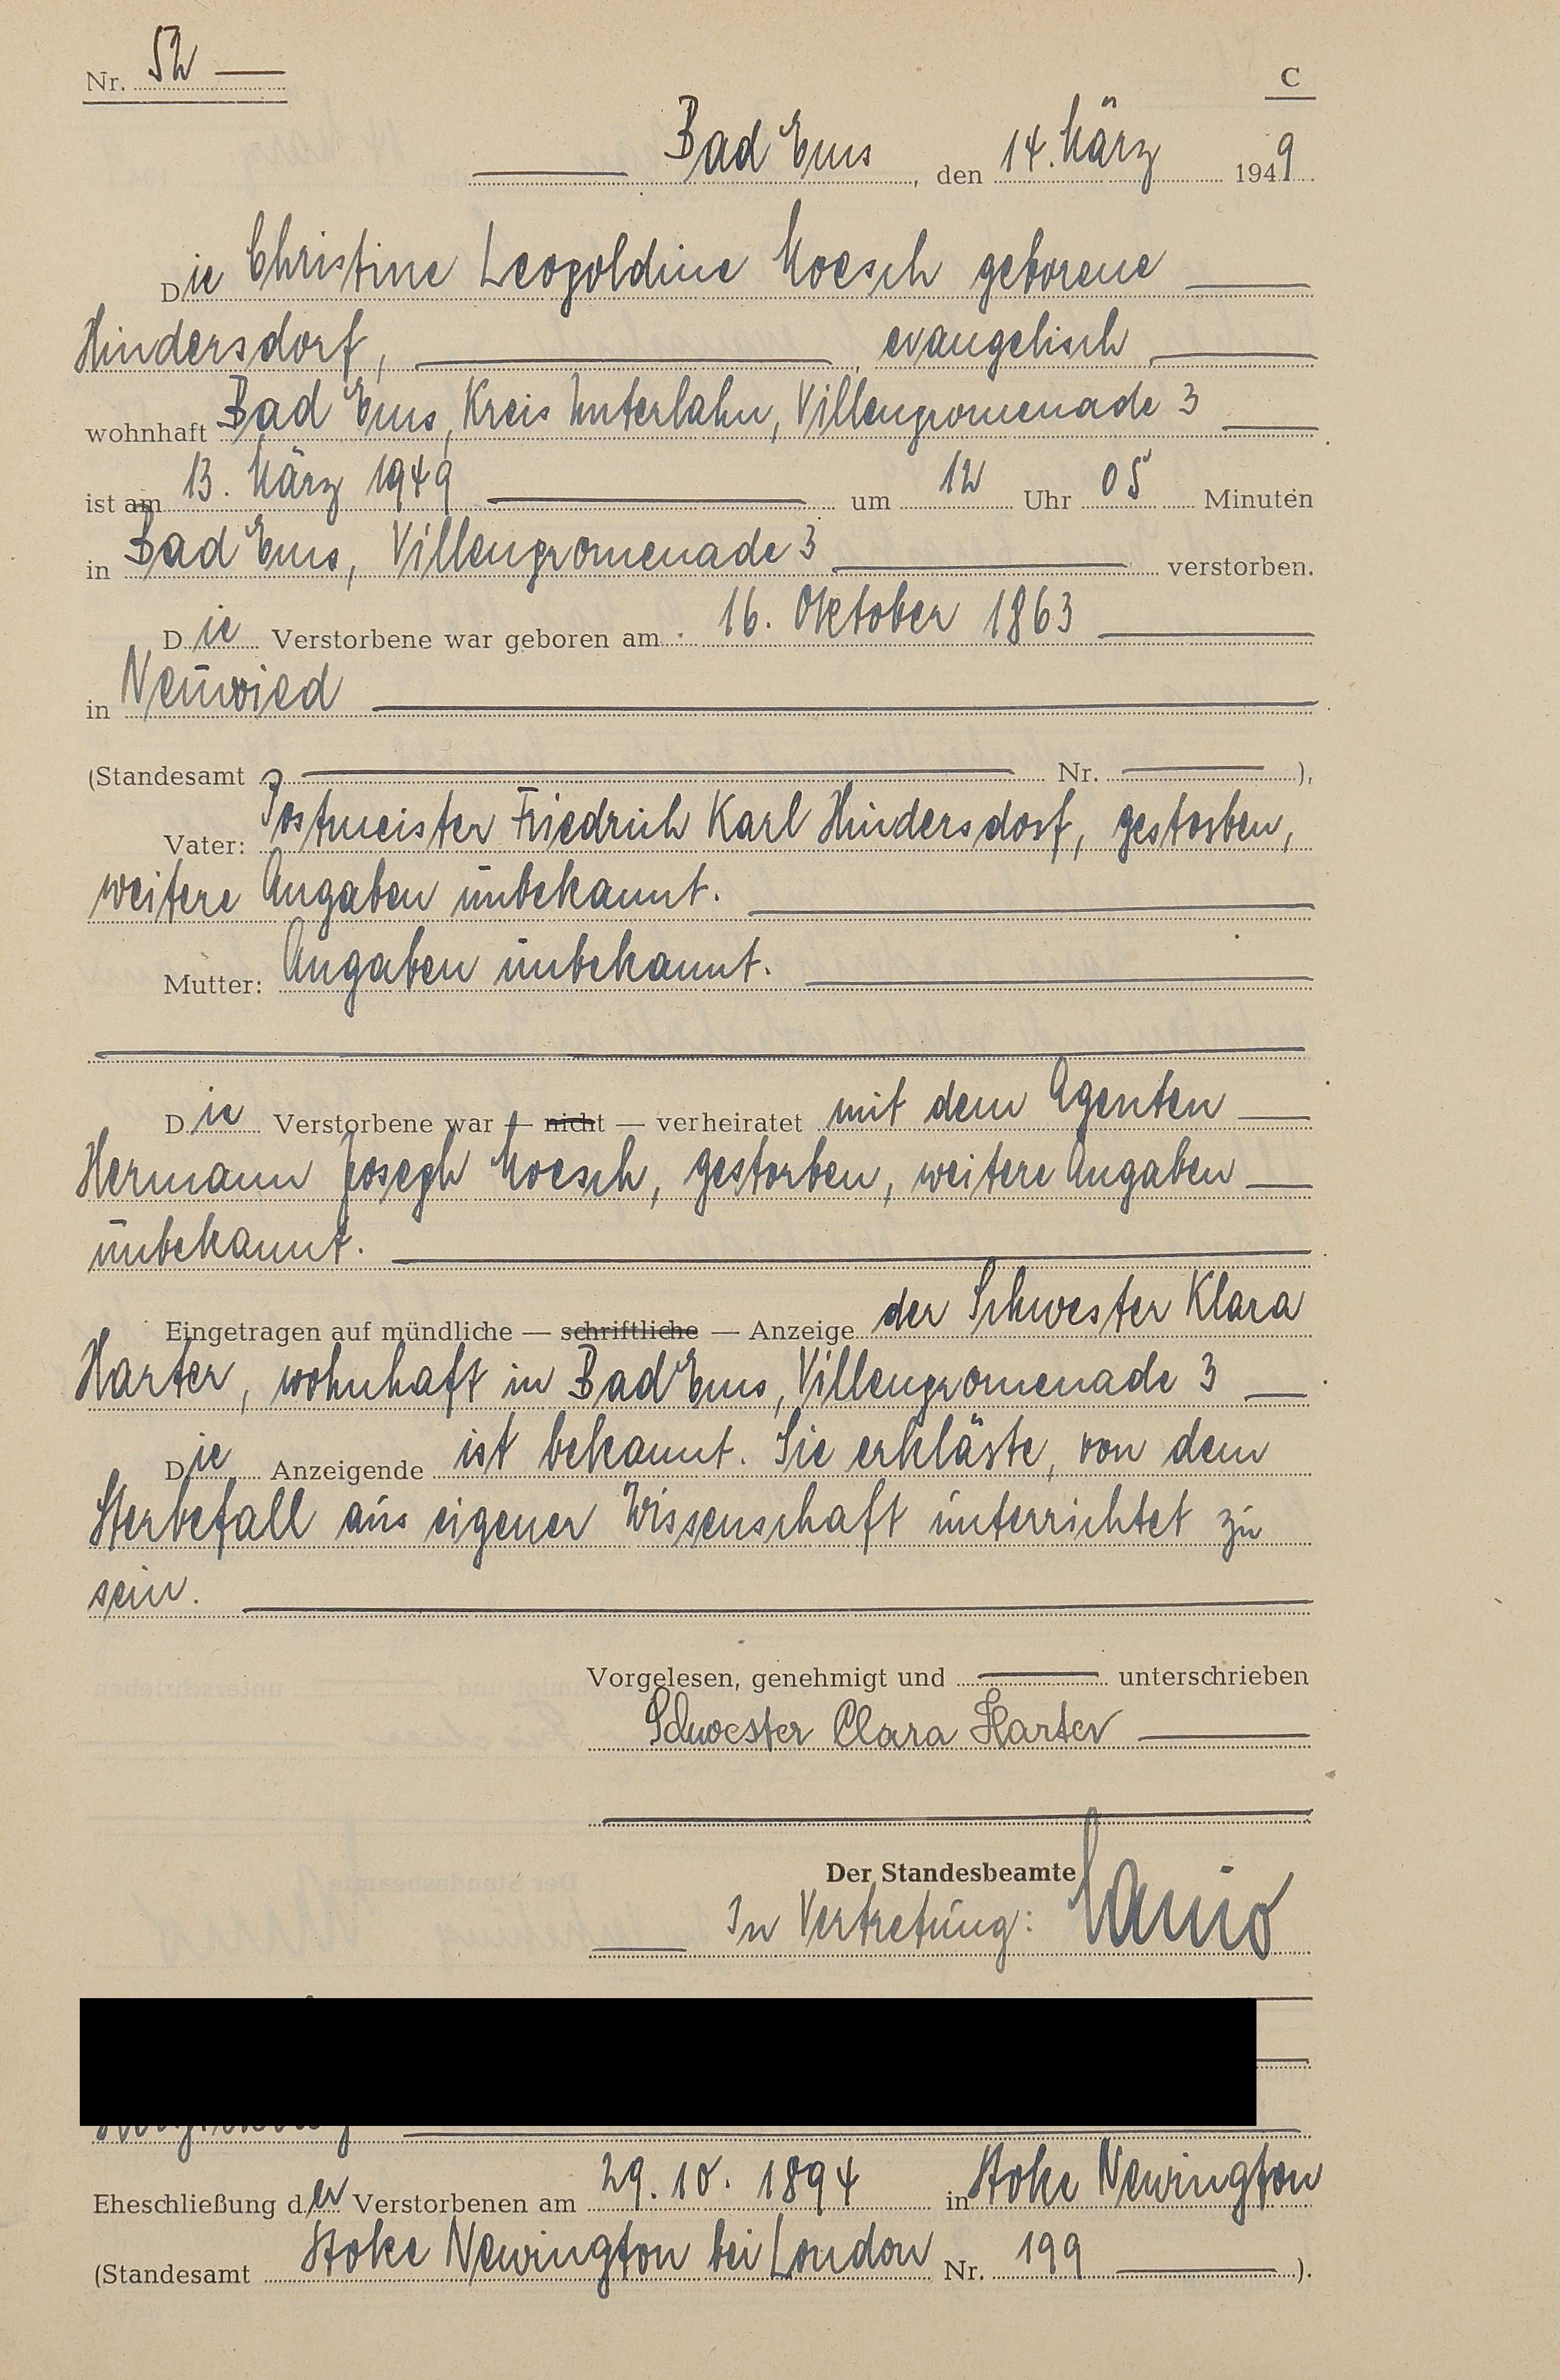 Nr. 52
C
Bad Ems, den 14. März 1949
Die Christine Leopoldine Moesch geborene
Hindersdorf, evangelisch
wohnhaft Bad Ems, Kreis Unterlahn, Villenpromenade 3
ist am 13. März 1949 um 12 Uhr 05 Minuten
in Bad Ems, Villenpromenade 3 verstorben.
Die Verstorbene war geboren am 16. Oktober 1863
in Neuwied
(Standesamt Nr. ),
Vater: Postmeister Friedrich Karl Hindersdorf, gestorben,
weitere Angaben unbekannt.
Mutter: Angaben unbekannt.
Die Verstorbene war — nicht — verheiratet mit dem Agenten
Hermann Joseph Moesch, gestorben, weitere Angaben
unbekannt.
Eingetragen auf mündliche — schriftliche — Anzeige der Schwester Klara
Harter, wohnhaft in Bad Ems, Villenpromenade 3
Die Anzeigende ist bekannt. Sie erklärte, von dem
Sterbefall aus eigener Wissenschaft unterrichtet zu
sein.
Vorgelesen, genehmigt und unterschrieben
Schwester Clara Harter
Der Standesbeamte
In Vertretung:
Eheschließung der Verstorbenen am 29. 10. 1894 in Stoke Newington
(Standesamt Stoke Newington bei London Nr. 199 ).